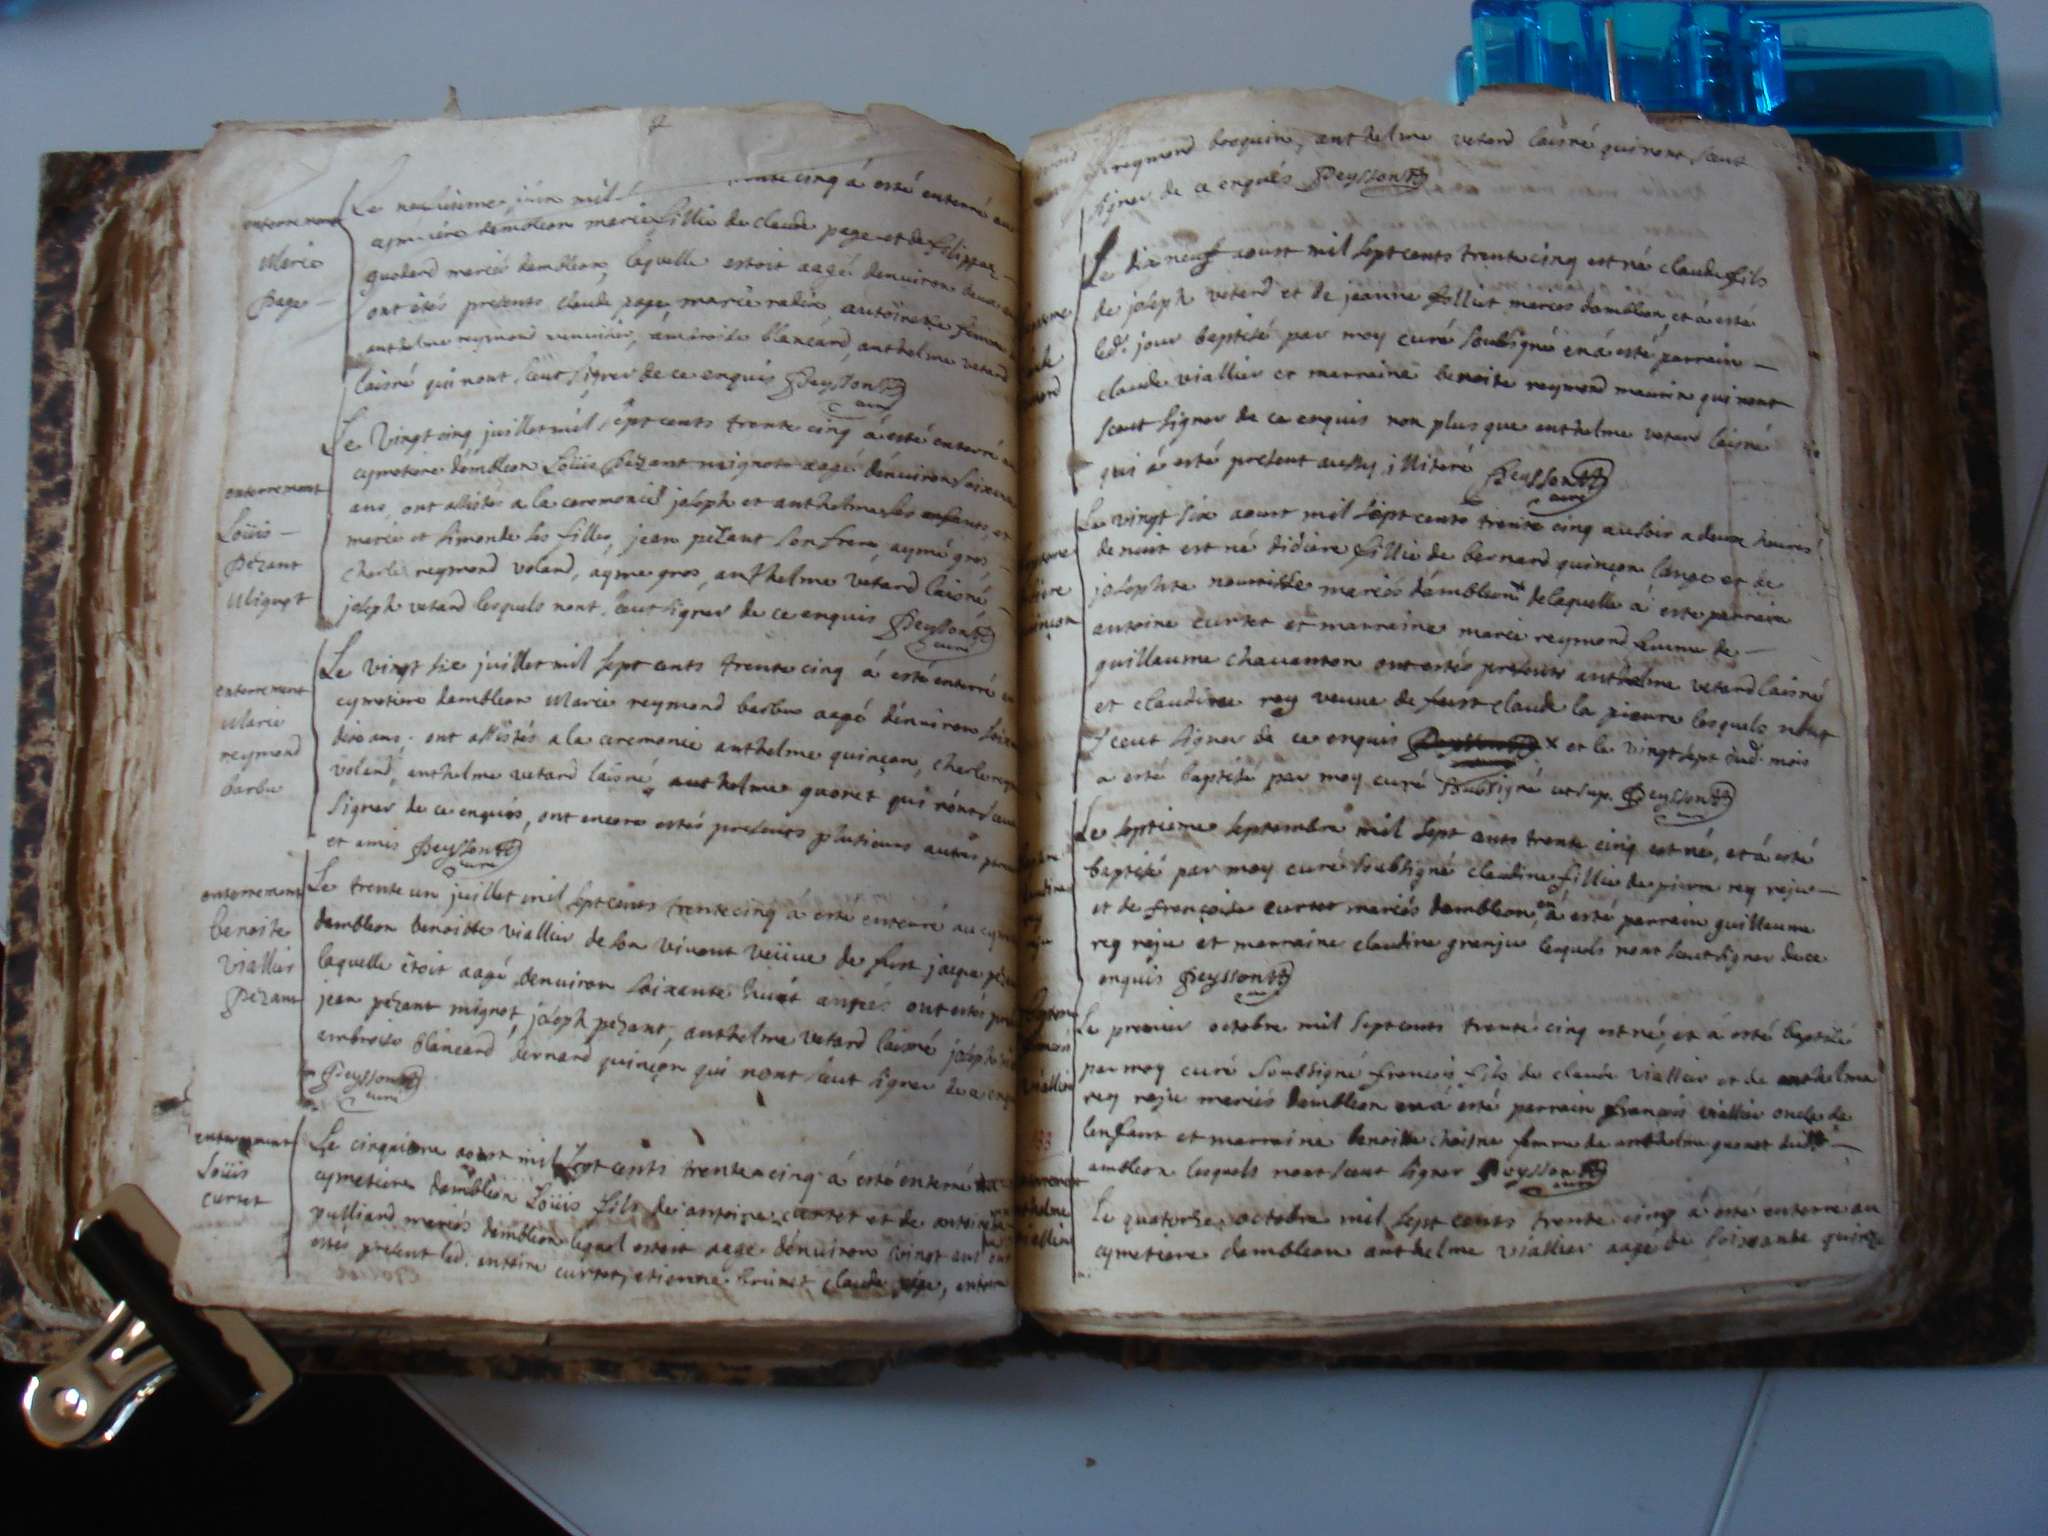 enterrement
Marie
page
Le juin mil trente cinq à esté enterré au
dembleon marie fillie de claude page et de
godard mariés dembleon, laquelle estoit aagé denuiron deux
ont étés présents claude page, marie radix, antoinette femme
anthelme reymond, ambroise blancard, anthelme vetard
laisné qui nont sceut signer de ce enquis Peysson
curé
enterrement
Loüis
Pézant
Mignot
Le Vingt cinq juillet mil sept cents trente cinq à esté enterré au
cymetiere démbleon Loüis Pézant mignot aagé dénuiron soixante
ans, ont assistés a la ceremonie joseph et anthelme ses enfants, et
marie et simonde ses filles, jean pézant son frere, aymé gros
charle reymond voland, ayme gros, anthelme vétard laisné
joseph vetard lesquels nont sceut signer de ce enquis Peysson
curé
enterrement
Marie
reymond
barbue
Le vingt six juillet mil sept cents trente cinq à esté énterré au
cymetiere dambleon Marie reymond barbue aagé dénuiron soixante
dix ans, ont assistés a la ceremonie anthelme quinçon, charle reymond
voland, anthelme vetard laisné, anthelme guonet qui nónt sceut
signer de ce enquis, ont encore estés presents plusieurs autres parents
et amis Peysson
curé
enterrement
benoite
viallier
Pézant
Le trente un juillet mil sept cents trente cinq à esté enterré au cymetiere
dambleon benoitte viallier de son vivant veüue de fust jaque pézant
laquelle étoit aagé denuiron soixante huit années ont estés présents
jean pézant mignot, joseph pézant, anthelme vetard laisné joseph
ambroise blancard bernard quinçon qui nont sceut signer de ce enquis
Peysson
curé
enterrement
Loüis
curtet
Le cinquieme aoust mil sept cents trente cinq à esté énterré au
cymetiere dambleon Loüis fils de antoine curtet et de antoinette
pulliand mariés dambleon lequel estoit aagé dénuiron vingt ans ont
estés present led. antoine curtet, etienne brunet claude page, antoine
reymond borguin, anthelme vetard laisné qui nont sceut
signer de ce enquis Peysson
Le dix neuf aoust mil sept cents trente cinq est né claude fils
de joseph vetard et de jeanne folliet mariés dambleon, et à esté
led. jour baptisé par moy curé soubsigné en á esté parrain
claude viallier et marraine benoite reymond maurin qui nont
sceut signer de ce enquis non plus que anthelme vetard laisné
qui á esté present aussy illiteré Peysson
curé
Le vingt six aoust mil sept cents trente cinq au soir a deux heures
de nuit est né didiere fillie de bernard quinçon lange et de
josephte nourrisse mariés dámbleon x de laquelle à esté parrain
antoine curtet et marraine marie reymond femme de
guillaume chauanton ont estés présents anthelme vetard laisné
et claudine rey veuue de feust claude la pierre lesquels nont
sceut signer de ce enquis Peysson x et le vingt sept dud. mois
a esté baptisé par moy curé soubsigné ut sup. Peysson
curé
Le septieme septembre mil sept cents trente cinq est né, et á esté
baptisé par moy curé soubsigné claudine fillie de pierre rey reju
et de françoise curtet mariés dambleon, en à esté parrain guillaume
rey reju et marraine claudine granju lesquels nont sceut signer de ce
enquis Peysson
curé
Le premier octobre mil sept cents trente cinq est né, et à esté baptisé
par moy curé soussigné francois fils de claude viallier et de anthelma
rey reju mariés dambleon en á esté parrain françois viallier oncle de
lenfant et marraine benoitte choisne femme de anthelme guonet dudit
ambleon lesquels nont sceut signer Peysson
curé
enterrement
anthelme
viallier
Le quatorze octobre mil sept cents trente cinq à esté enterré au
cymetiere dambleon anthelme viallier aagé de soixante quinze